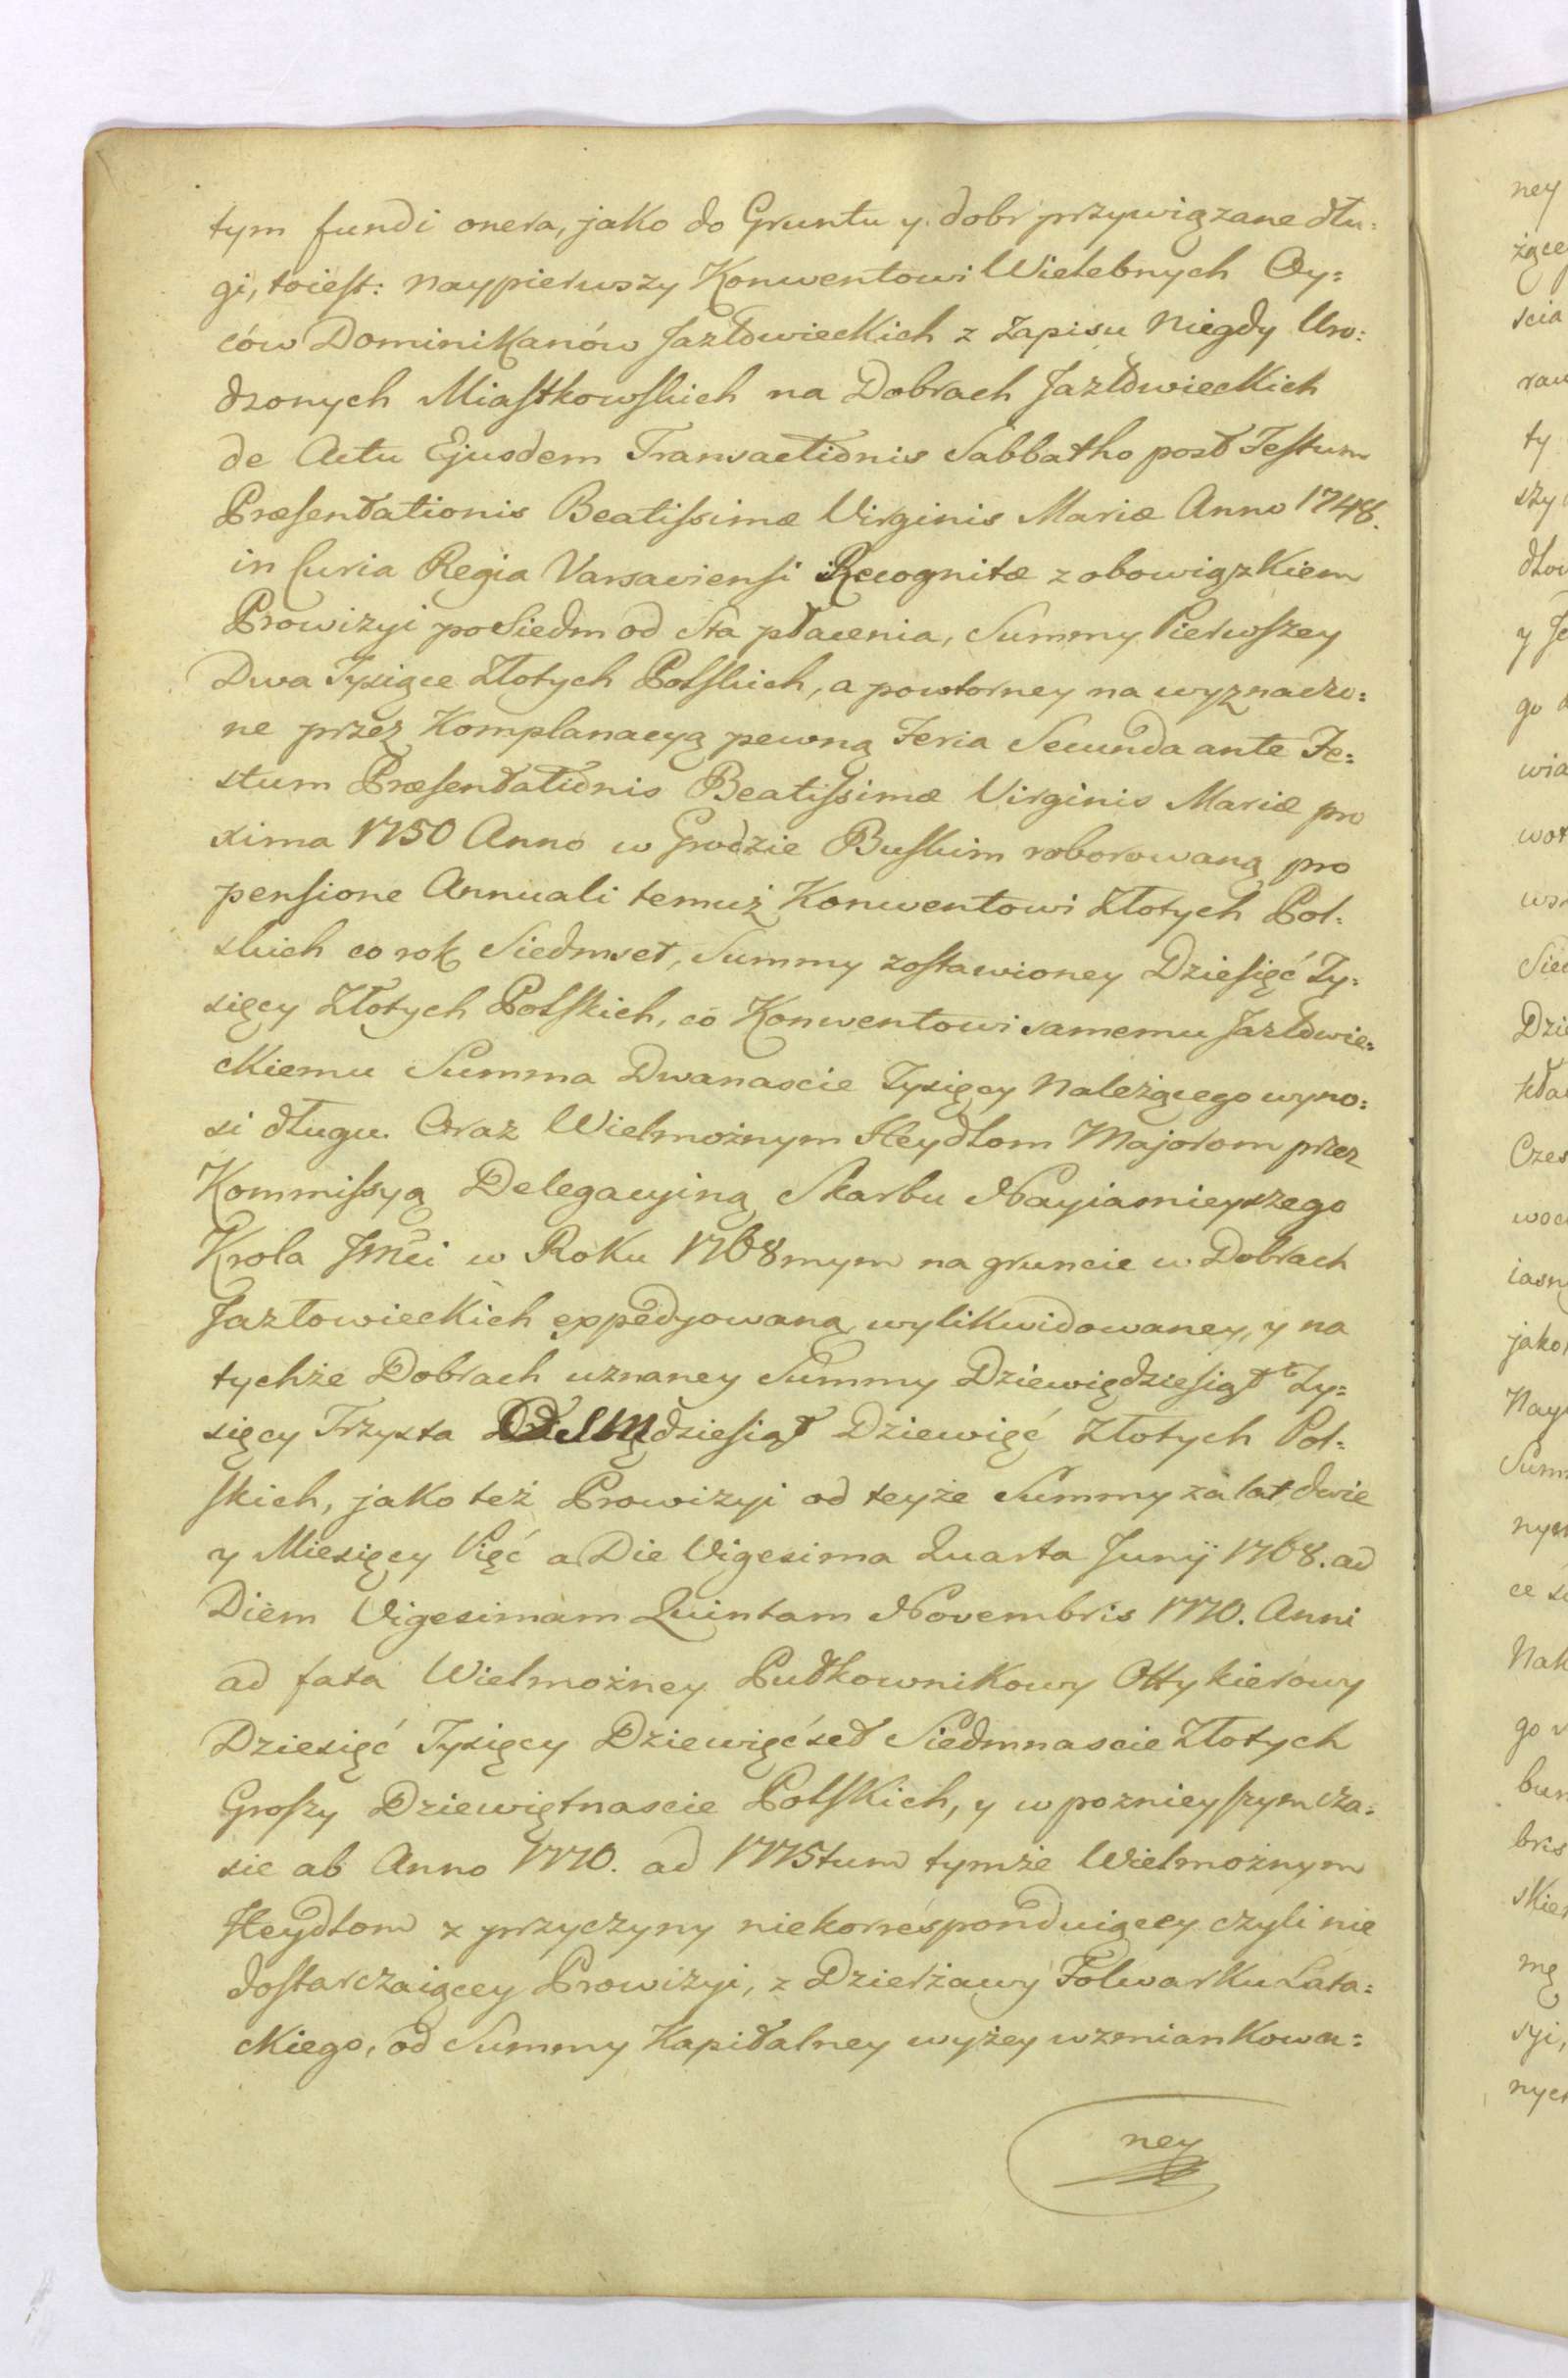 tym fundi onera, jako do Gruntu y dobr przywiązane dłu:
gi, toiest: naypierwszy Konwentowi Wielebnych Oy:
ców Dominikanów Jazłowieckich z Zapisu Niegdy Uro:
dzonych Miastkowskich na Dobrach Jazłowieckich
de Actu Ejusdem Transactionis Sabbatho post Festum
Præsentationis Beatissimæ Virginis Mariæ Anno 1748.
in Curia Regia Varsaviensi Recognitæ z obowiązkiem
Prowizyi po Siedm od Sta płacenia, Summy Pierwszey
Dwa Tysiące Złotych Polskich, a powtorney na wyznaczo:
ne przez Komplanacyą pewną Feria Secunda ante Fe:
stum Præsentationis Beatissimæ Virginis Mariæ pro
xima 1750 Anno w Grodzie Buskim roborowaną pro
pensione Annuali temuż Konwentowi Złotych Pol:
skich co rok Siedmset, Summy zostawioney Dziesięć Ty:
sięcy Złotych Polskich, co Konwentowi samemu Jazłowie:
ckiemu Summa Dwanascie Tysięcy Należącego wyno:
si długu. Oraz Wielmożnym Heydlom Majorom przez
Kommissyą Delegacyiną Skarbu Nayiasnieyszego
Krola Jmći w Roku 1768mym na gruncie w Dobrach
Jazłowieckich expedyowaną wylikwidowaney, y na
tychże Dobrach uznaney Summy Dziewięćdziesiąt Ty:
sięcy Trzysta dziesiąt Dziewięć Złotych Pol:
skich, jako też Prowizyi od teyże Summy za lat dwie
y Miesięcy Pięć a Die Vigesima Quarta Junij 1768. ad
Diem Vigesimam Quintam Novembris 1770. Anni
ad fata Wielmożney Pułkownikowy Ottykierowy
Dziesięć Tysięcy Dziewięćset Siedmnascie Złotych
Groszy Dziewiętnascie Polskich, y w poznieyszym cza:
sie ab Anno 1770. ad 1775tum tymże Wielmożnym
Heydlom z przyczyny niekorrespondująccy czyli nie
dostarczaiącey Prowizyi, z Dzierżawy Folwarku Lata:
ckiego, od Summy Kapitalney wyżey wzmiankowa:
ney
ney
scia
ty
y
go
Dzie
mę
syi,
nych